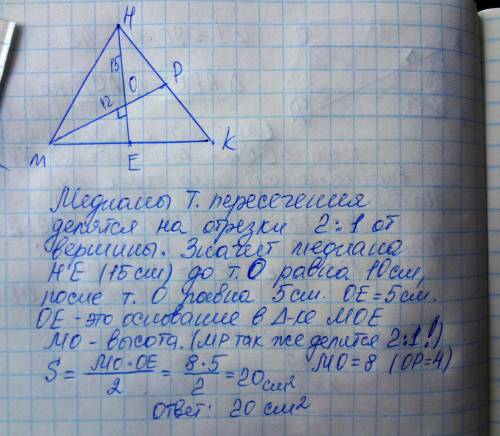 H
15
P
O
12
M
E
K
Медианы т. пересечения
делятся на отрезки 2:1 от
вершины. Значит медиана
НЕ (15см) до т. О равна 10см,
после т. О равна 5см. ОЕ=5см.
ОЕ - это основание в Δ-ке МОЕ
МО - высота. (МР так же делится 2:1!)
S = МО·ОЕ/2 = 8·5/2 = 20см² МО=8 (ОР=4)
Ответ: 20 см²